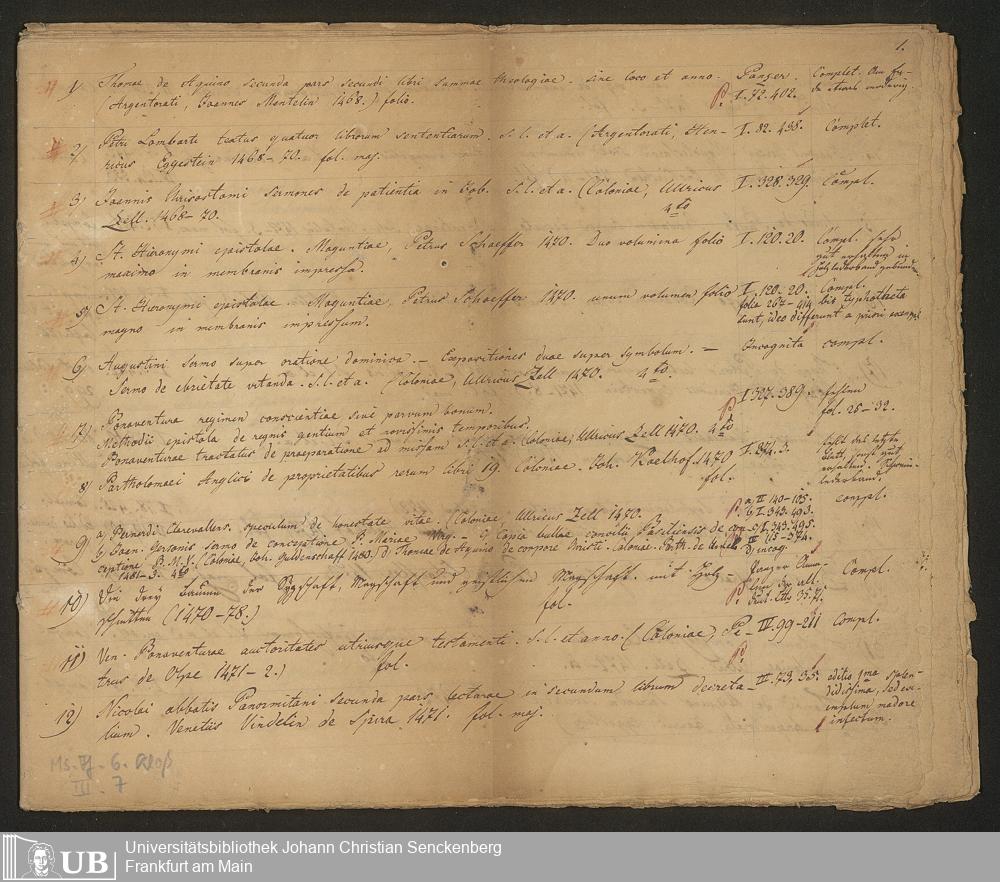 1.
1) Thomae de Aquino secunda pars secundi libri summae theologiae. sine loco et anno. Panzer. Complet.
(Argentorati, Joannes Mentelin 1468.) folio. P. I. 72. 402.
2) Petri Lombardi textus quatuor librorum sententiarum. s. l. et a. (Argentorati, Hen- I. 82. 438. Complet.
ricus Eggestein 1468-70. fol. maj.
3) Joannis Chrisostomi sermones de patientia in Job. S. l. et a. (Coloniae, Ulricus I. 328. 329. Compl.
Zell. 1468-70. 4to
4) St. Hieronymi epistolae. Maguntiae, Petrus Schoeffer 1470. Duo volumina folio I. 120. 20. Compl. sehr
maximo in membranis impressa. gut erhalten in
Holzlederband gebunden
5) St. Hieronymi epistolae. Maguntiae, Petrus Schoeffer 1470. unum volumen folio I. 120. 20. Compl.
magno in membranis impressum. folia 267-414 bis typothetata
sunt, ideo differunt a priori
6) Augustini Sermo super oratione dominica. — Expositiones duae super symbolum. — Incognita compl.
Sermo de ebrietate vitanda. S. l. et a. (Coloniae, Ulricus Zell 1470. 4to.
7) Bonaventurae regimen conscientiae sive parvum bonum. P. I 307. 389. fehlen
Methodii epistola de regnis gentium et novissimis temporibus. fol. 25-32.
Bonaventurae tractatus de praeparatione ad missam S. l. et a. Coloniae, Ulricus Zell 1470. 4to
8) Bartholomaei Anglici de proprietatibus rerum libri 19. Coloniae. Joh. Koelhof. 1470 I. 274. 3. fehlt das letzte
fol. Blatt, sonst gut
erhalten. Schwein-
lederband.
9) a, Bernardi Clarevallens. speculum de honestate vitae. (Coloniae, Ulricus Zell 1470. P. a, II 140-195. compl.
b, Joan. Gersonis sermo de conceptione B. Mariae Virg. — c, Copia bullae concilii Basiliensis de con- b, I. 343. 493.
ceptione B. M. V. (Coloniae, Joh. Guldenschaff 1480. d, Thomae de Aquino de corpore Christi. Coloniae. c, I. 343. 495.
1481-3. 4to d, incog.
10) Die drey Bäume der Sippschaft, Magschaft und geistlichen Magschaft. mit Holz- Panzer Compl.
schnitten (1470-78.) fol.
11) Ven. Bonaventurae auctoritates utriusque testamenti. S. l. et anno. (Coloniae, Pe- IV. 99-211 Compl.
trus de Olpe 1471-2.) fol. P.
12) Nicolai abbatis Panormitani secunda pars lecturae in secundum librum decreta- III. 73, 35. editio 1ma splen-
lium. Venetiis Vindelin de Spira 1471. fol. maj. didissima, sed ex-
emplum madore
infectum.
Ms. Ff. 6.
III - 7
UB
Universitätsbibliothek Johann Christian Senckenberg
Frankfurt am Main